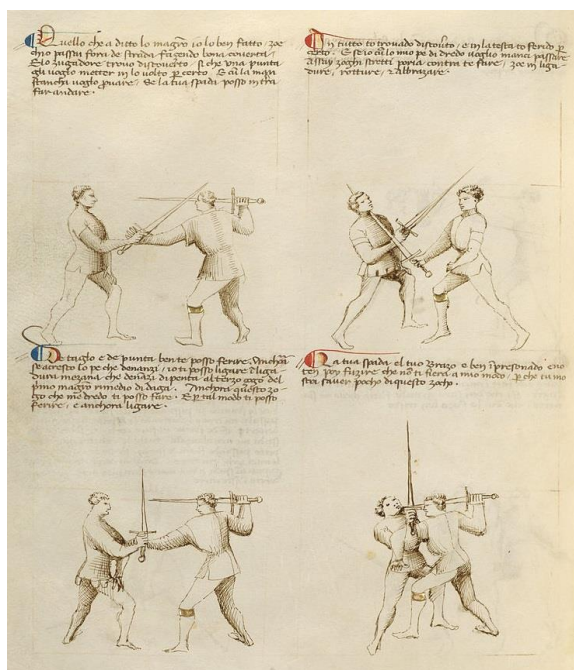 Quello che a ditto lo magro io lo ben fatto, zoe
chio passai fora de strada façendo bona coverta.
E lo zugadore trovo discoverto, si che una punta
gli voglo metter in lo volto per certo. E cum la man
stancha voglo provare, Se la tua spada posso in tera
far andare.
In tutto to trovado discoverto, e in la testa to ferido per
certo. E se io cum lo mio pe di dredo voglio inanci passare
assay zoghi stretti poria contra te fare, zoe in liga-
dure, rotture, e abrazare.
De taglo e de punta ben te posso ferire. Anchora
se acresco lo pe che denanzi, io ti posso ligare
mezana che denanzi di penta al terzo zogo del
primo magro rimedio di daga. Anchora questo zo-
gho che me dredo ti posso fare. E per tal modo ti posso
ferire, e anchora ligare.
La tua spada el tuo brazo e ben impresonado e no
ten poy fuzire che non ti fiera a mio modo, per che tu mo-
stra saver pocho di questo zogho.